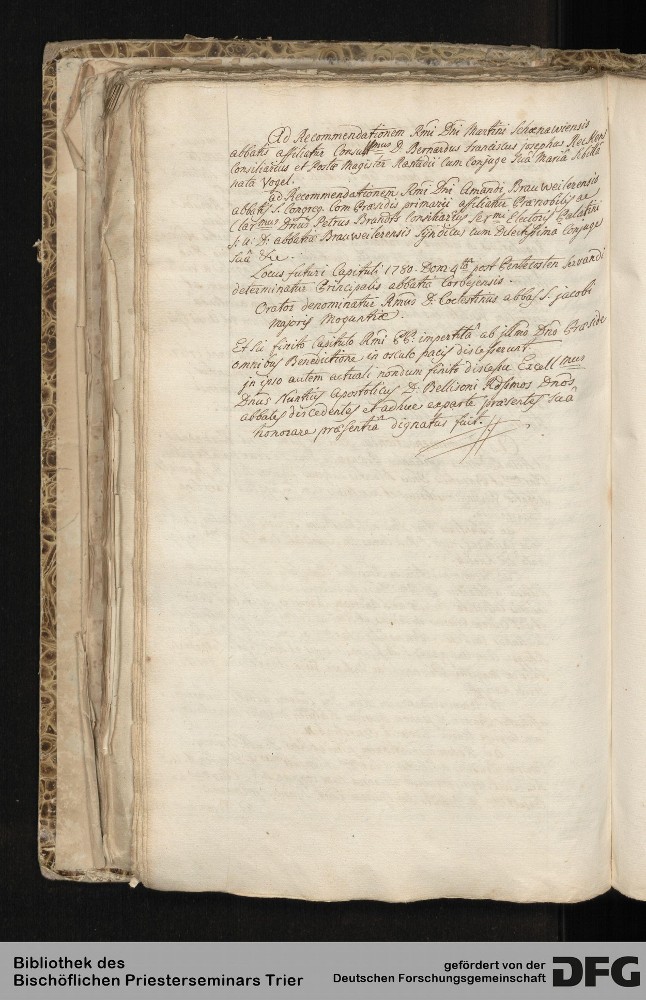 Ad Recommendationem Rmi Dni Martini Schönawiensis
abbatis affiliatur Consultssmus D. Bernardus Franciscus Josephus
Consiliarius et Postæ Magister Nastadii Cum Conjuge Suâ Maria Sibilla
nata Vogel.
ad Recommendationem Rmi Dni Amandi Brauweilerensis
abbatis S. Congreg. Com Præsidis primarii affiliatur Prænobilis ac
Clarmus Dnus Petrus Brandts Consiliarius Sermi Electoris Palatini
J: U: D: abbatiæ Brauweilerensis Syndicus cum Dilectissima Conjuge
Suâ &c.
Locus futuri Capituli 1780. Dom. 4tâ post Pentecosten servandi
determinatur Principalis abbatia Corbejensis.
Orator denominatur Rmus D. Coelestinus abbas S. Jacobi
majoris Moguntiæ.
Et sic finito Capitulo Rmi PP. impertitâ ab illmo Dno Præside
omnibus Benedictione in osculo pacis discesserunt
in ipso autem actuali nondum finito discessu Excellmus
Dnus Nuntius Apostolicus D. Bellisoni Rdssmos Dnos
abbates discedentes et adhuc exparte præsentes suâ
honorare præsentiâ dignatus fuit.
Bibliothek des
Bischöflichen Priesterseminars Trier
gefördert von der
Deutschen Forschungsgemeinschaft
DFG